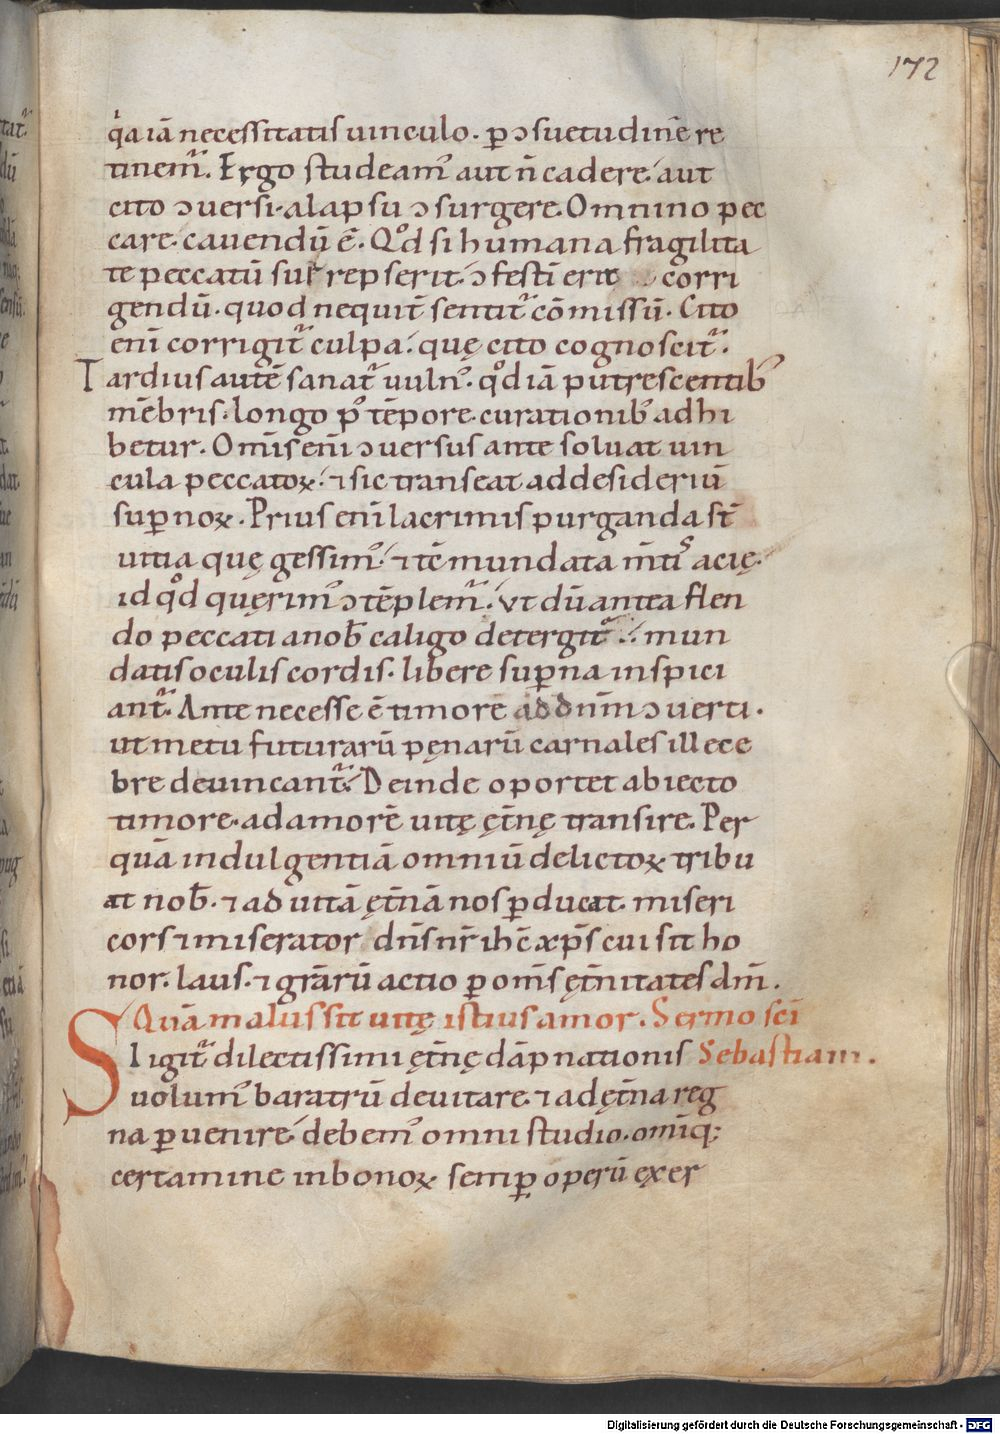 172
q̇a iā necessitatis uinculo. ꝑ ↄsuetudinē re
tinem᷑. Ergo studeamꝰ aut n̄ cadere. aut
cito ↄuersi. a lapsu ↄsurgere. Omnino pec
care. cauendū ē. Qͦd si humana fragilita
te peccatū surrepserit. ↄfestī erit corri
gendū. quod nequit̄ sentit᷑ cōmissū. Cito
enī corrigit᷑ culpa. quę cito cognoscit᷑.
Tardius autē sanat᷑ uulnꝰ. qͦd iā putrescentibꝰ
mēbris. longo pꝰ tēpore. curationibꝰ adhi
betur. Om̄is enī ↄuersus ante soluat uin
cula peccatoꝝ. ⁊ sic transeat ad desideriū
suꝑnoꝝ. Prius enī lacrimis purganda st̄
uitia quę gessimꝰ. ⁊ tē mundata m̄tis acię.
id qͦd quęrimꝰ ↄtēplem᷑. Vt dū antea flen
do peccati a nob̄ caligo detergit᷑. mun
datis oculis cordis. libere suꝑna inspici
ant᷑. Ante necesse ē timorē ad dn̄m ↄuerti.
ut metu futurarū pęnarū carnales illece
bre deuincant᷑. Deinde oportet abiecto
timore. ad amorē uitę ęt̄nę transire. Per
quā indulgentiā omniū delictoꝝ tribu
at nob̄. ⁊ ad uitā ęt̄nā nos ꝑducat. miseri
cors ⁊ miserator dn̄s nr̄ ih̄c xp̄s cui sit ho
nor. laus. ⁊ grārū actio ꝑ om̄s ęt̄nitates dm̄.
Quā malus sit uitę istius amor. Sermo scī
Sligit᷑ dilectissimi ęt̄nę dāpnationis Sebastiani.
uolumꝰ baratrū deuitare. ⁊ ad ęt̄na reg
na ꝑuenire. debemꝰ omni studio. omīq;
certamine in bonoꝝ semꝑ operū exer
Digitalisierung gefördert durch die Deutsche Forschungsgemeinschaft - DFG